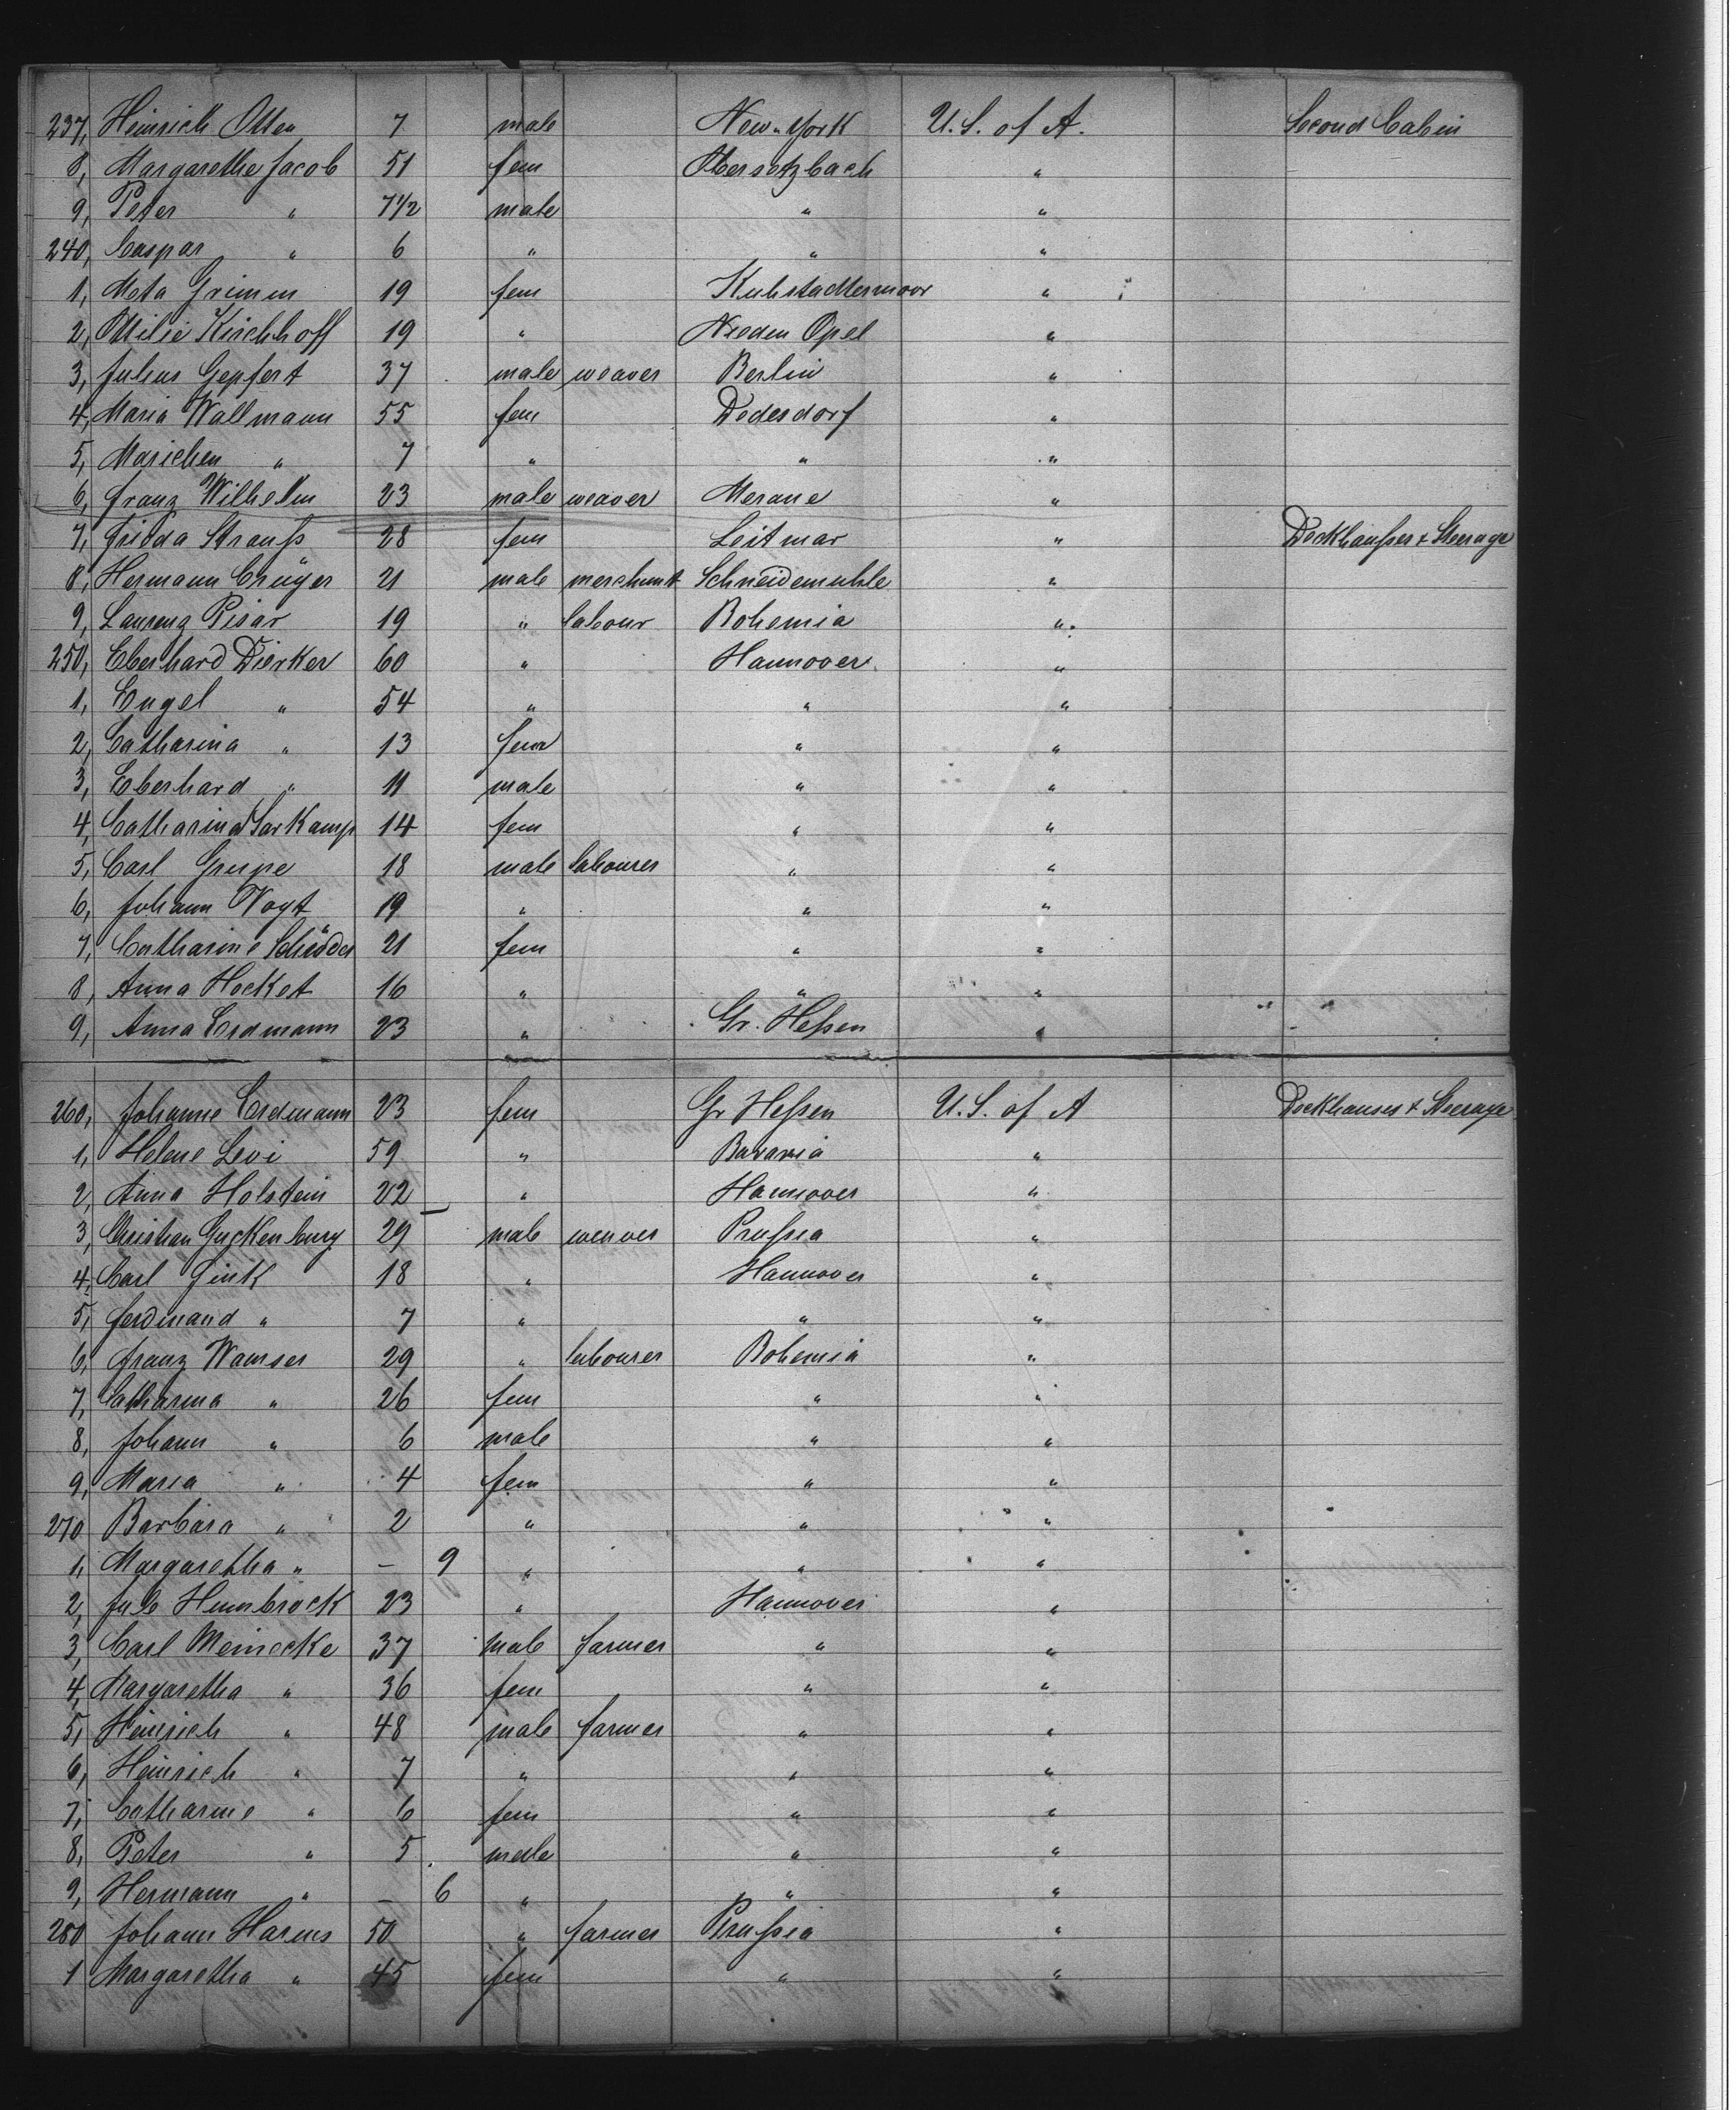 237, Heinrich Otten 7 male New-York U.S. of A. Second Cabin
8, Margarethe Jacob 51 fem Obersotzbach "
9, Peter " 7 1/2 male " "
240, Caspar " 6 " " "
1, Meta Grimm 19 fem Kuhstadtermoor "
2, Ottilie Kirchhoff 19 " "
3, Julius Gepfert 37 male weaver Berlin "
4, Maria Wallmann 55 fem Dedesdorf "
5, Mariechen " 7 " " "
6, Franz Wilhelm 23 male weaver Merane "
7, Frieda Strauß 28 fem Leitmar " Deckhauses & Steerage
8, Hermann Crüger 21 male merchant Schneidemuhle "
9, Laurenz Pisar 19 " labour Bohemia "
250, Eberhard Dierker 60 " Hannover "
1, Engel " 54 " " "
2, Catharina " 13 fem " "
3, Eberhard " 11 male " "
4, Catharina 14 fem " "
5, Carl Grupe 18 male labourer " "
6, Johann Vogt 19 " " "
7, Catharine Schröder 21 fem " "
8, Anna Hocket 16 " " "
9, Anna Erdmann 23 " Gr. Heßen "
260, Johanne Erdmann 23 fem Gr Heßen U.S. of A Deckhauses & Steerage
1, Helene Levi 59 " Bavaria "
2, Anna Holstein 22 " Hannover "
3, Christian Guckenburg 29 male weaver Prußia "
4, Carl Fink 18 " Hannover "
5, Ferdinand " 7 " " "
6, Franz Wamser 29 " labourer Bohemia "
7, Catharina " 26 fem " "
8, Johann " 6 male " "
9, Maria " 4 fem " "
270 Barbara " 2 " " "
1, Margaretha " – 9 " " "
2, 23 " Hannover "
3, Carl Meinecke 37 male farmer " "
4, Margaretha " 36 fem " "
5, Heinrich " 48 male farmer " "
6, Heinrich " 7 " " "
7, Catharine " 6 fem " "
8, Peter " 5 male " "
9, Hermann " – 6 " " "
280 Johann Harms 50 " farmer Prußia "
1 Margaretha " 45 fem " "